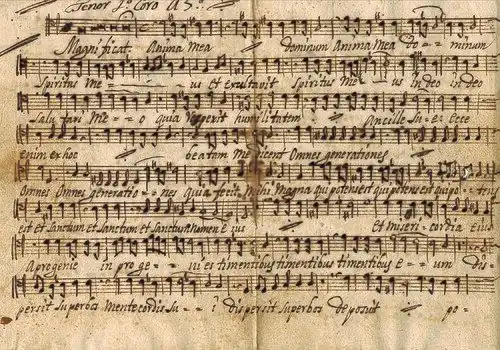 Tenor 1.º Coro A 8.
Magnificat. Anima Mea dominum Anima Mea do = = minum
Spiritus Me = = us et exultavit Spiritus Me = us in deo in deo
Salutari Me = = o quia respexit humilitatem Ancille Su = e Ecce
enim ex hoc beatam Me dicent Omnes generationes
Omnes Omnes generatio = = nes quia fecit Mihi Magna qui potens est qui potens est qui po =
est et Sanctum et Sanctum et Sanctum Nomen eius Et misericordia eius
Aprogenie in proge = nies timentibus timentibus timentibus e = = um dis=
persit Superbos Mente cordis Su = i dispersit Superbos deposuit po =